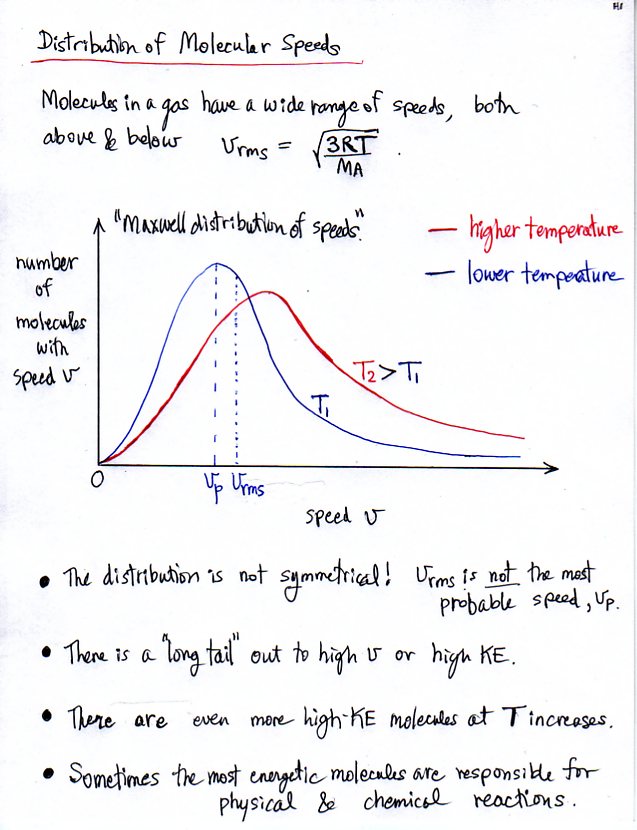 H1
Distribution of Molecular Speeds
Molecules in a gas have a wide range of speeds, both
above & below Vrms = √3RT/MA .
"Maxwell distribution of speeds"
— higher temperature
— lower temperature
number
of
molecules
with
speed v
T2 > T1
T1
0
Vp Vrms
speed v
• The distribution is not symmetrical! Vrms is not the most
probable speed, Vp.
• There is a "long tail" out to high v or high KE.
• There are even more high-KE molecules at T increases.
• Sometimes the most energetic molecules are responsible for
physical & chemical reactions.